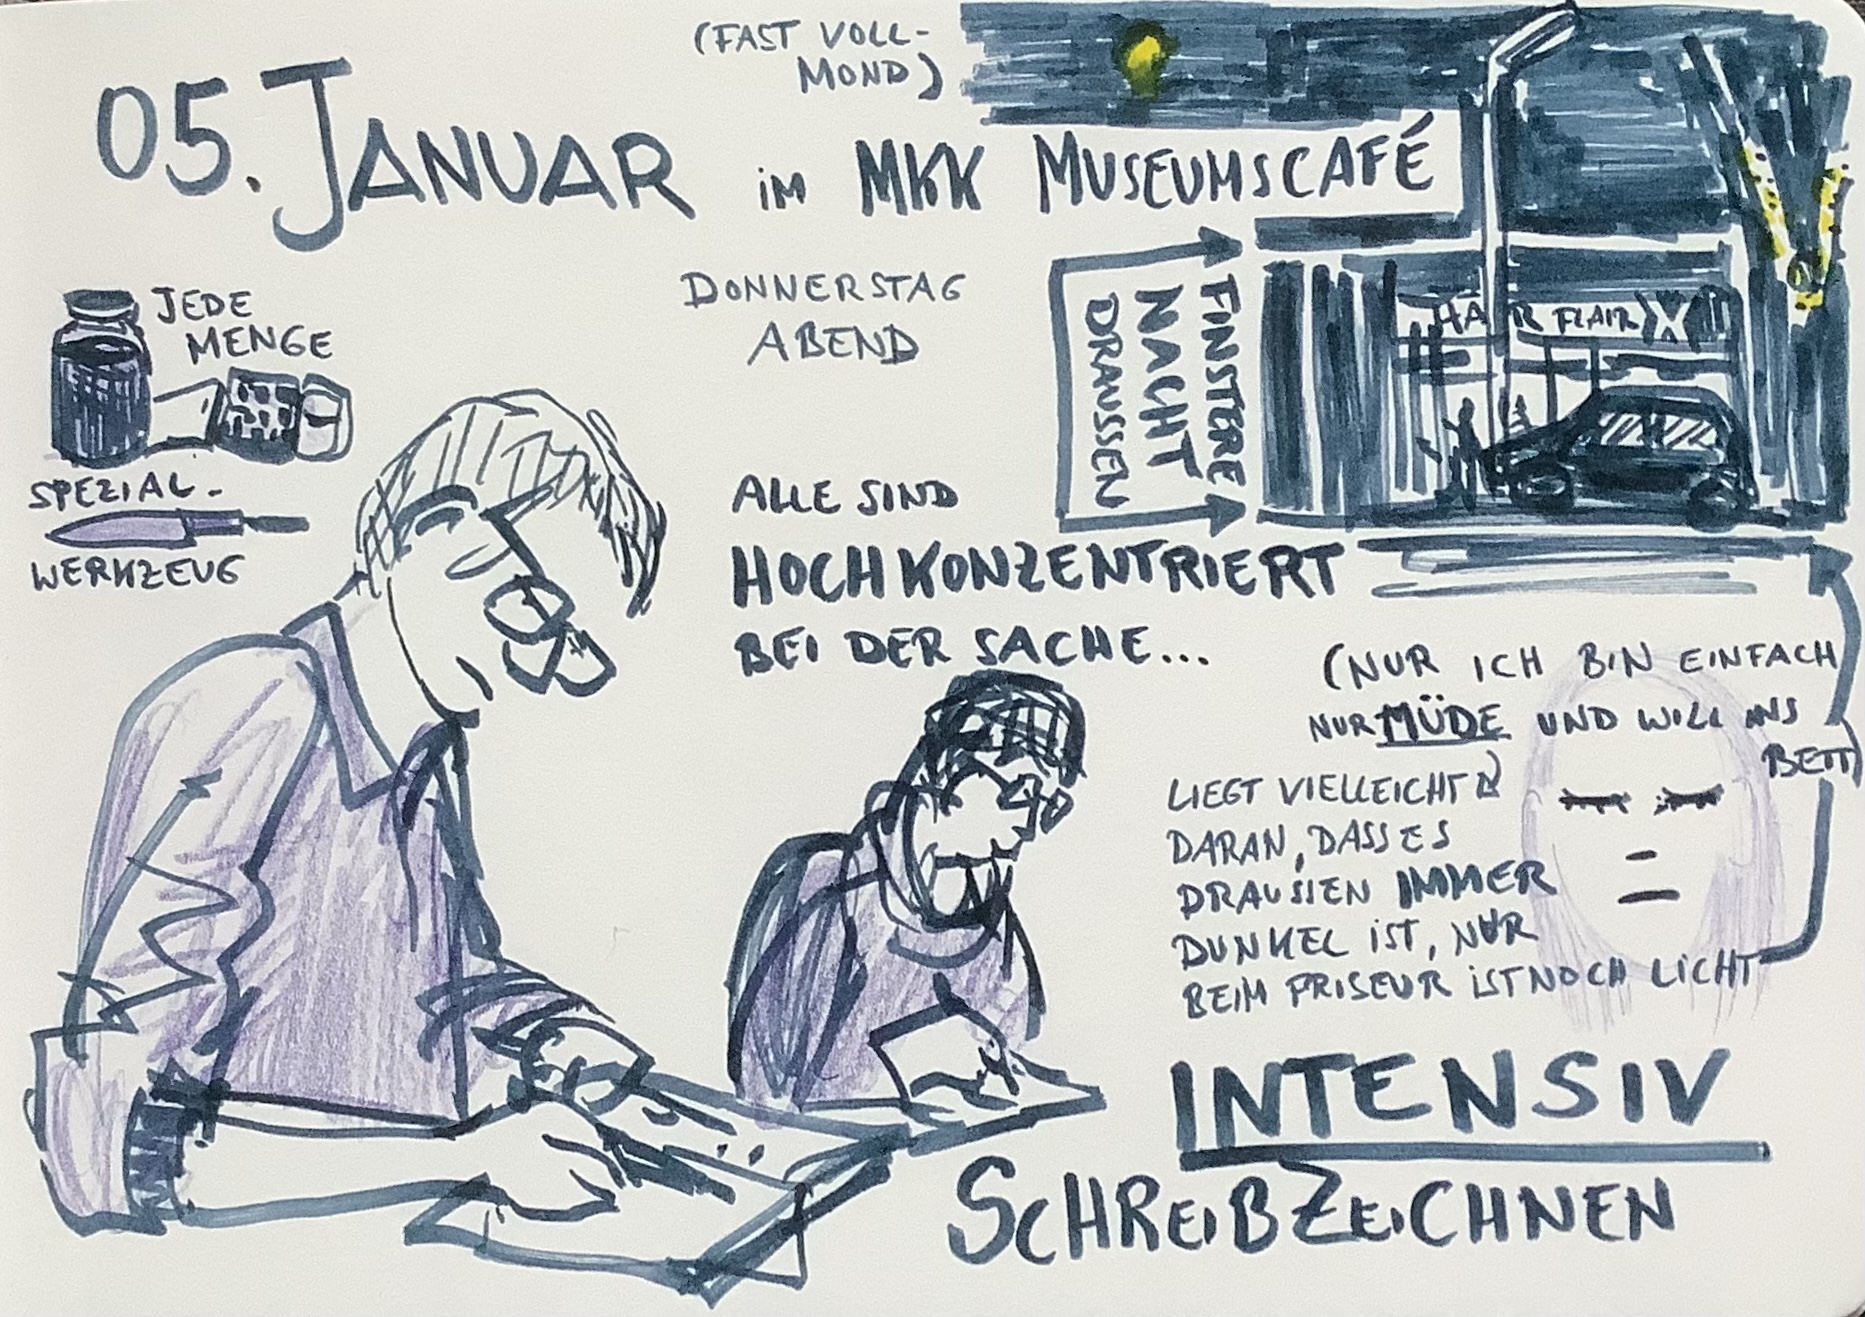 (FAST VOLL-
MOND)
05. JANUAR IM MKK MUSEUMSCAFÉ
DONNERSTAG
ABEND
JEDE
MENGE
SPEZIAL-
WERKZEUG
FINSTERE
NACHT
DRAUSSEN
HAIR FLAIR X
ALLE SIND
HOCHKONZENTRIERT
BEI DER SACHE...
(NUR ICH BIN EINFACH
NUR MÜDE UND WILL INS
BETT)
LIEGT VIELLEICHT
DARAN, DASS ES
DRAUSSEN IMMER
DUNKEL IST, NUR
BEIM FRISEUR IST NOCH LICHT
INTENSIV
SCHREIBZEICHNEN